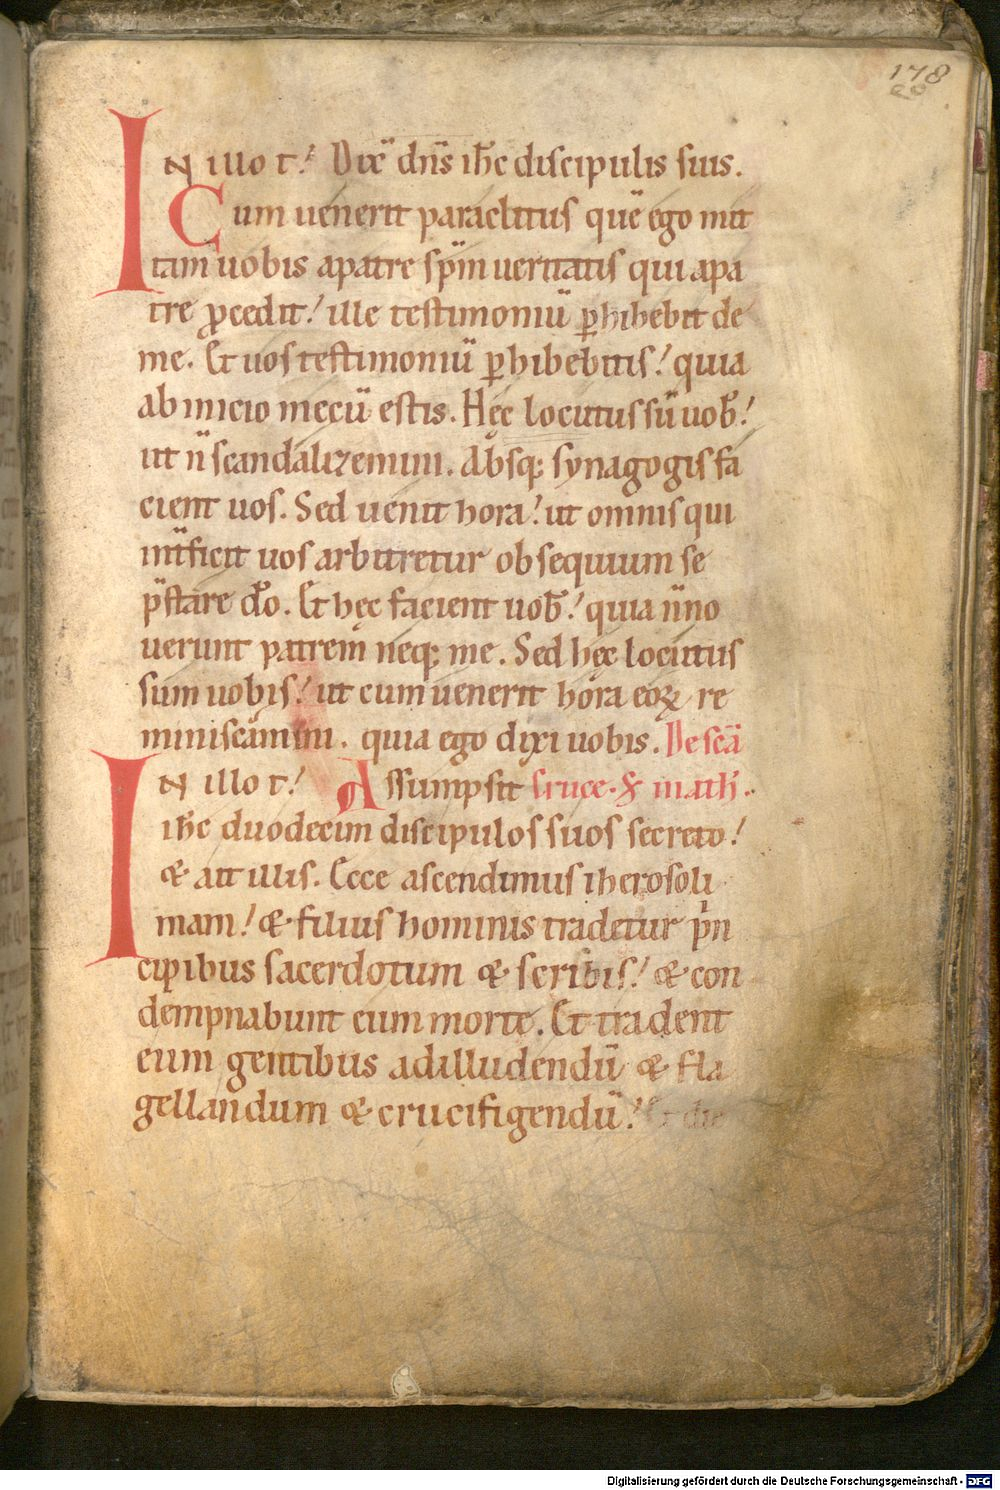 178
IN illo t. Dix̄ dn̄s ih̄c discipulis suis.
Cum uenerit paraclitus quē ego mit
tam uobis apatre sp̄m ueritatis qui apa
tre ꝓcedit! ille testimoniū ꝑhibebit de
me. Et uos testimoniū ꝑhibebitis! quia
ab inicio mecū estis. Hęc locutus sū uob̄!
ut n̄ scandalizemini. Absq; synagogis fa
cient uos. Sed uenit hora! ut omnis qui
int̄ficit uos arbitretur obsequium se
p̄stare dō. Et hęc facient uob̄! quia n̄ no
uerunt patrem neq; me. Sed hęc locutus
sum uobis! ut cum uenerit hora eoꝝ re
miniscamini. quia ego dixi uobis. De scā
IN illo t! Assumpsit cruce. & math̄.
ih̄c duodecim discipulos suos secreto!
& ait illis. Ecce ascendimus iherosoli
mam! & filius hominis tradetur pn
cipibus sacerdotum & scribis! & con
dempnabunt eum morte. Et tradent
eum gentibus ad illudendū & fla
gellandum & crucifigendū! Et die
Digitalisierung gefördert durch die Deutsche Forschungsgemeinschaft - DFG